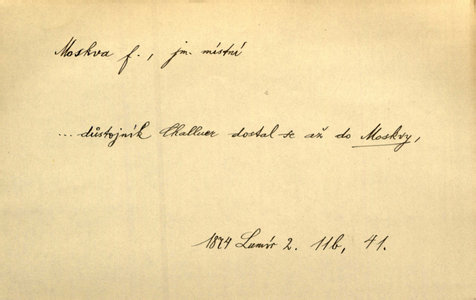 Moskva f., jm. místní
... důstojník Challuer dostal se až do Moskvy,
1874 Lumír 2. 11b, 41.